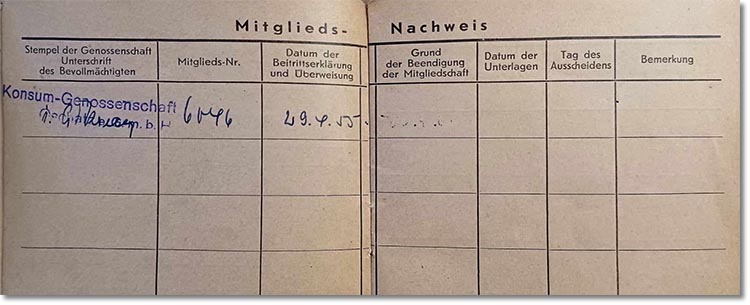 Mitglieds- Nachweis
Stempel der Genossenschaft
Unterschrift
des Bevollmächtigten
Mitglieds-Nr.
Datum der
Beitrittserklärung
und Überweisung
Grund
der Beendigung
der Mitgliedschaft
Datum der
Unterlagen
Tag des
Ausscheidens
Bemerkung
Konsum-Genossenschaft
m. b. H
6046
29. 4. 55.